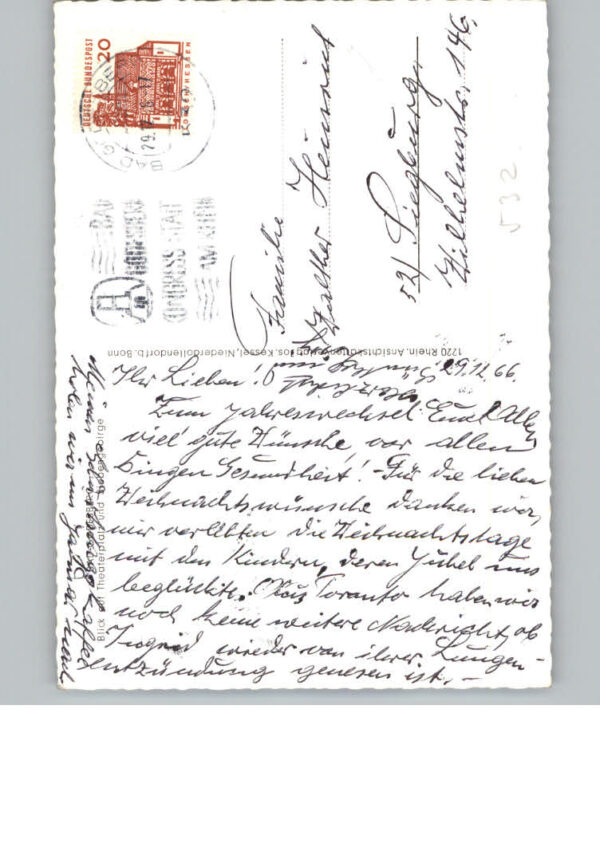 DEUTSCHE BUNDESPOST
20
LORSCH/HESSEN
29.12.
BAD
KONGRESS-STADT
AM RHEIN
Familie
Walther Heinrich
521 Siegburg
Wilhelmstr. 146.
532
1220 Rhein. Ansichtskartenverlag Jos. Kessel, Niederdollendorf b. Bonn
Blick auf Theaterplatz und Siebengebirge
29.12.66.
Ihr Lieben!
Zum Jahreswechsel Euch Allen
viel gute Wünsche, vor allen
Dingen Gesundheit! - Für die lieben
Weihnachtswünsche danken wir,
wir verlebten die Weihnachtstage
mit den Kindern, deren Jubel uns
beglückte. Aus Toronto haben wir
noch keine weitere Nachricht, ob
Ingrid wieder von ihrer Lungen-
entzündung genesen ist. -